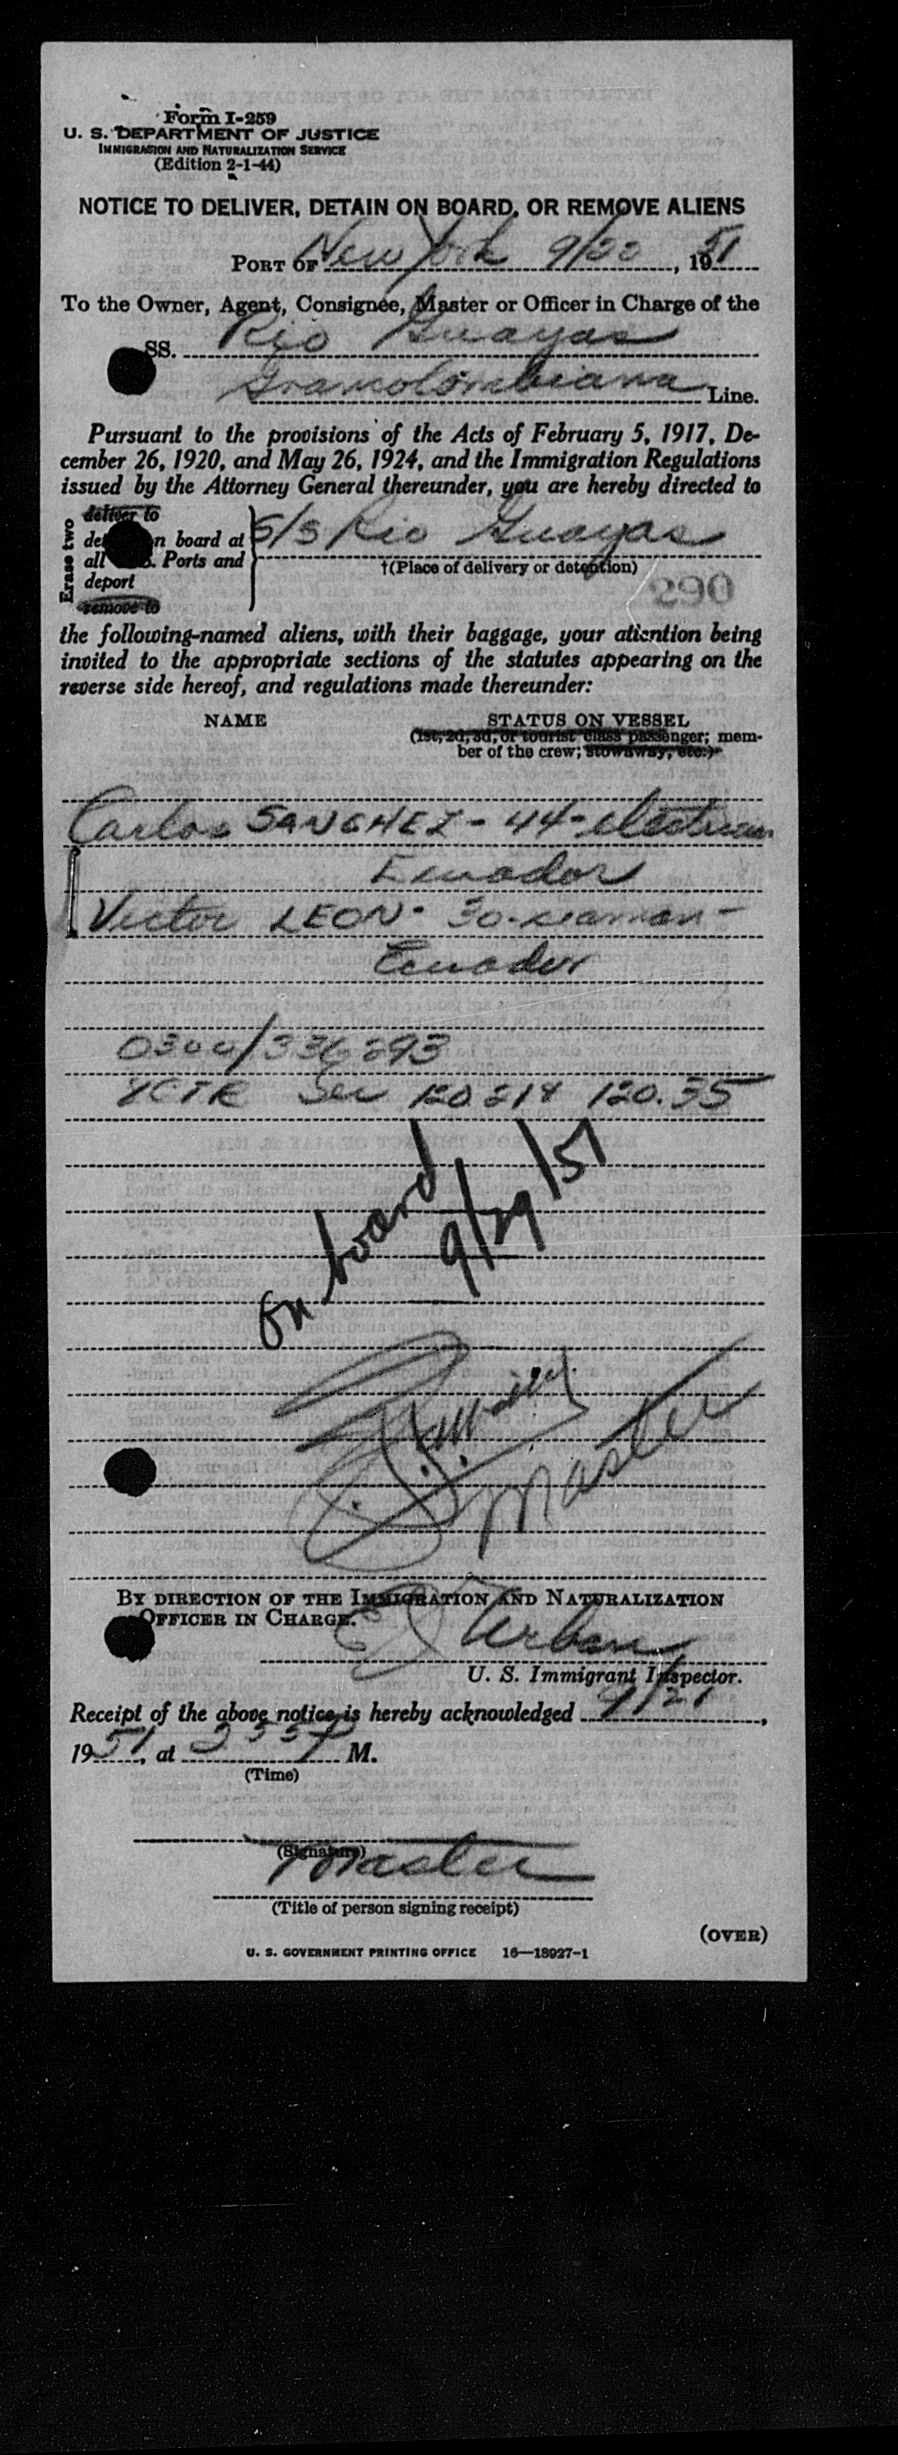 Form I-259
U. S. DEPARTMENT OF JUSTICE
IMMIGRATION AND NATURALIZATION SERVICE
(Edition 2-1-44)
NOTICE TO DELIVER, DETAIN ON BOARD, OR REMOVE ALIENS
PORT OF New York 9/22, 1951
To the Owner, Agent, Consignee, Master or Officer in Charge of the
SS. Rio Guayas
Grancolombiana Line.
Pursuant to the provisions of the Acts of February 5, 1917, De-
cember 26, 1920, and May 26, 1924, and the Immigration Regulations
issued by the Attorney General thereunder, you are hereby directed to
Erase two
deliver to
n board at
all Ports and
deport
remove to
S/S Rio Guayas
†(Place of delivery or detention)
290
the following-named aliens, with their baggage, your attention being
invited to the appropriate sections of the statutes appearing on the
reverse side hereof, and regulations made thereunder:
NAME STATUS ON VESSEL
(1st, 2d, 3d, or tourist class passenger; mem-
ber of the crew; stowaway, etc.)
Carlos SANCHEZ - 44 - electrician
Ecuador
Victor LEON - 30 - seaman -
Ecuador
0300/336293
120.214 120.35
on board
9/29/51
Master
BY DIRECTION OF THE IMMIGRATION AND NATURALIZATION
OFFICER IN CHARGE.
Urban
U. S. Immigrant Inspector.
Receipt of the above notice is hereby acknowledged 9/21,
1951, at M.
(Time)
(Signature)
Master
(Title of person signing receipt)
(OVER)
U. S. GOVERNMENT PRINTING OFFICE 16—18927-1